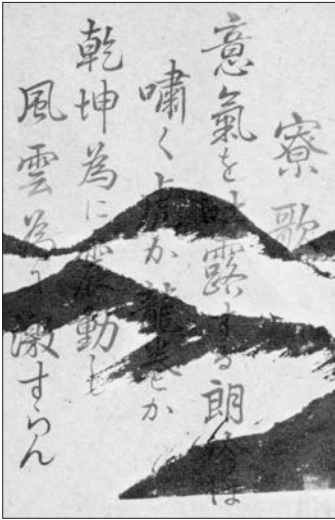 寮歌
意氣を吐露する朗は
嘯く虎か龍か
乾坤為に震動し
風雲為に激すらん